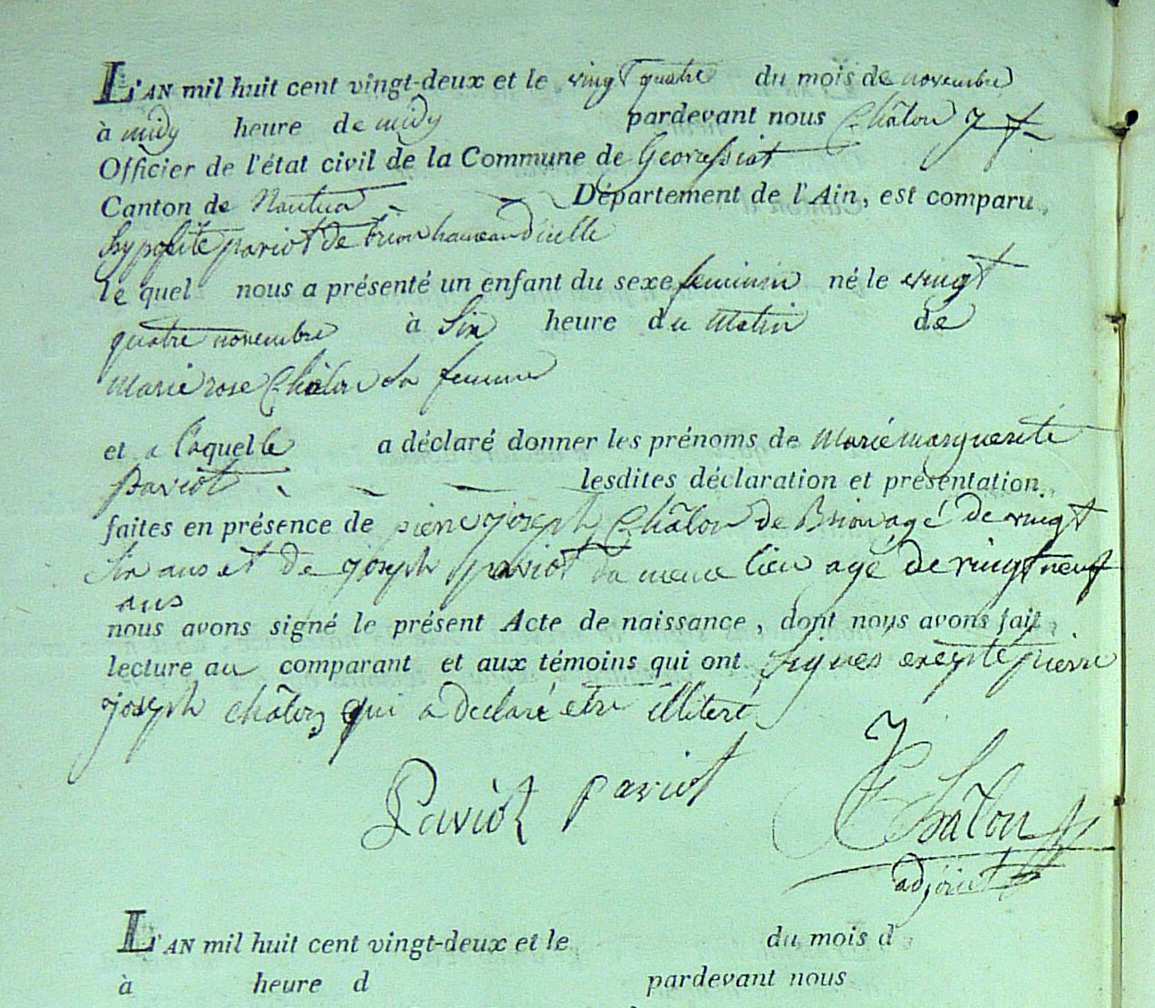 L'AN mil huit cent vingt-deux et le vingt quatre du mois de novembre
à midy heure de midy pardevant nous Châlon J f
Officier de l'état civil de la Commune de Geovressiat
Canton de Nantua Département de l'Ain, est comparu
hypolite paviot de brion hameau d'icelle
le quel nous a présenté un enfant du sexe feminin né le vingt
quatre novembre à Six heure du Matin de
Marie rose Châlon sa femme
et a laquelle a déclaré donner les prénoms de Marie marguerite
Paviot lesdites déclaration et présentation
faites en présence de pierre joseph Châlon de Brion agé de vingt
Six ans et de joseph paviot du meme lieu agé de vingt neuf
ans
nous avons signé le présent Acte de naissance, dont nous avons fait
lecture au comparant et aux témoins qui ont signés exepté pierre
joseph châlon qui a declaré etre illiteré
Paviot paviot J Châlon
adjoint
L'AN mil huit cent vingt-deux et le du mois d
à heure d pardevant nous